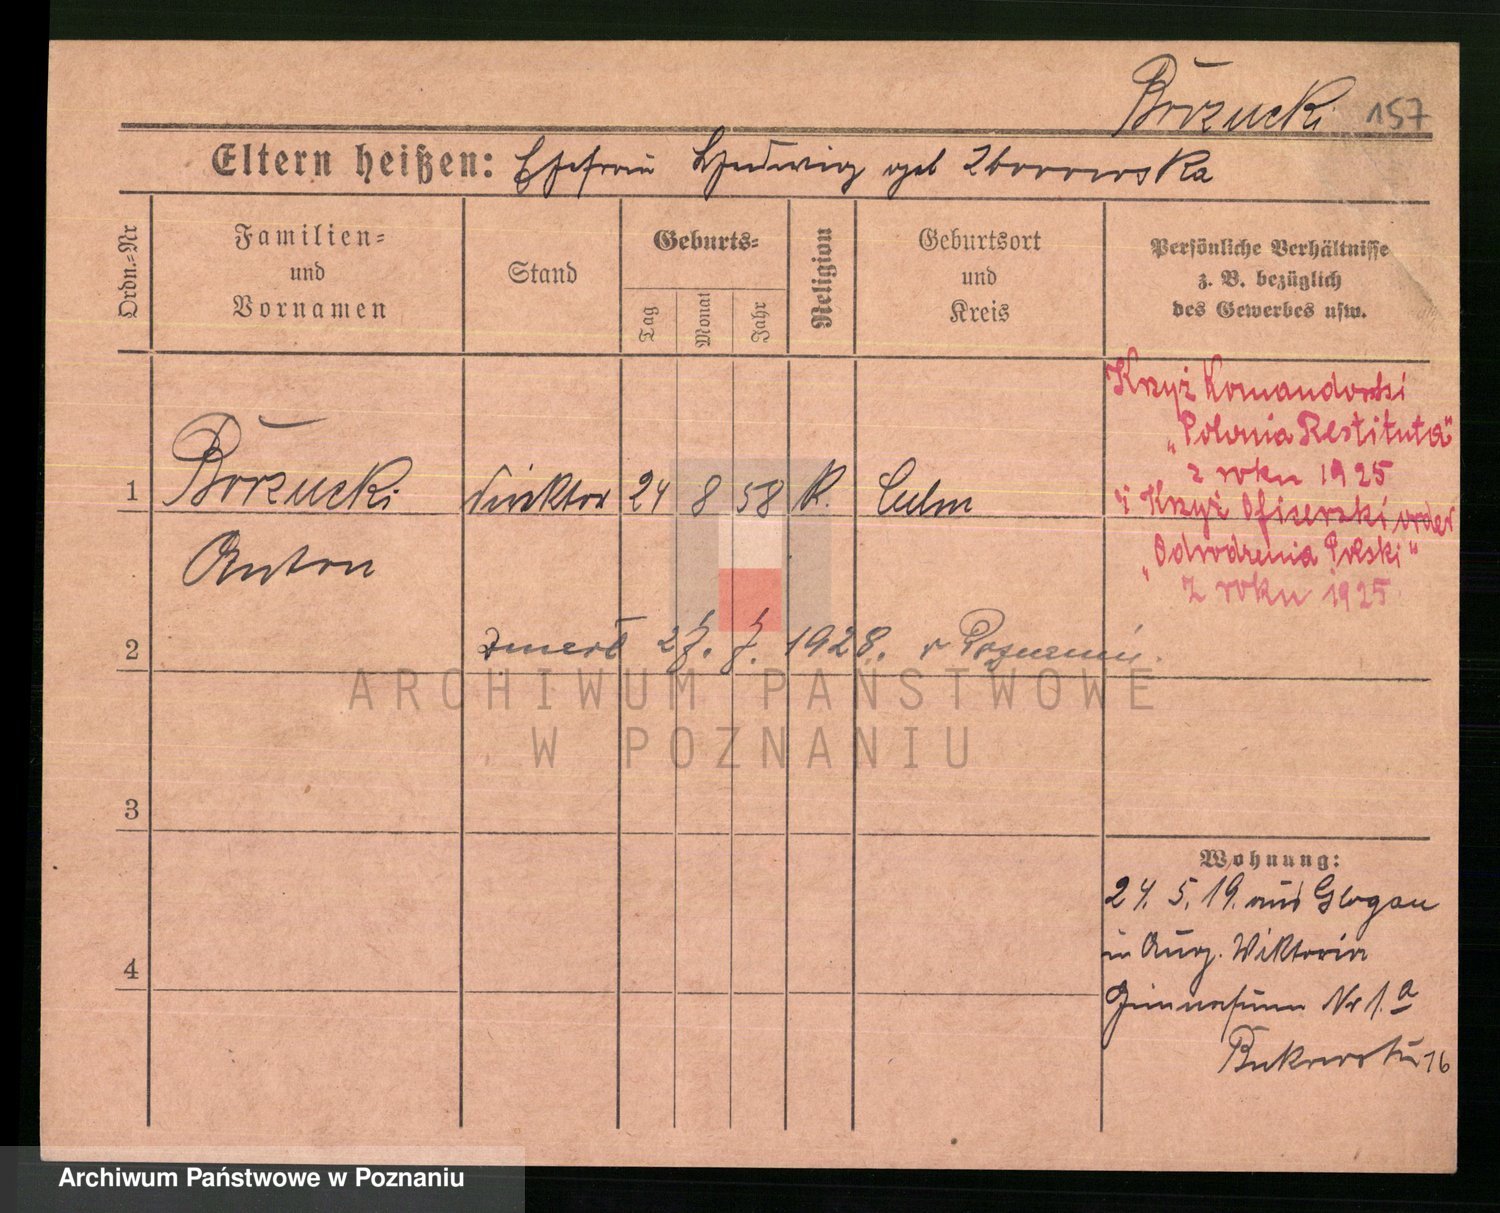 Borzucki 157
Eltern heißen: Ehefrau Hedwig geb Zborowska
Ordn.=Nr
Familien=
und
Vornamen
Stand
Geburts=
Tag
Monat
Jahr
Religion
Geburtsort
und
Kreis
Persönliche Verhältnisse
z. B. bezüglich
des Gewerbes usw.
Krzyż Komandorski
„Polonia Restituta"
z roku 1925
i Krzyż Oficerski order
„Odrodzenia Polski"
z roku 1925
1 Borzucki Direktor 24 8 58 K. Culm
Anton
2 zmarł 27. 7. 1928. w Poznaniu.
ARCHIWUM PAŃSTWOWE
W POZNANIU
3
Wohnung:
24. 5. 19. aus Glogau
in Aug. Wiktoria
Gimnasium Nr 1.a
4
16
Archiwum Państwowe w Poznaniu